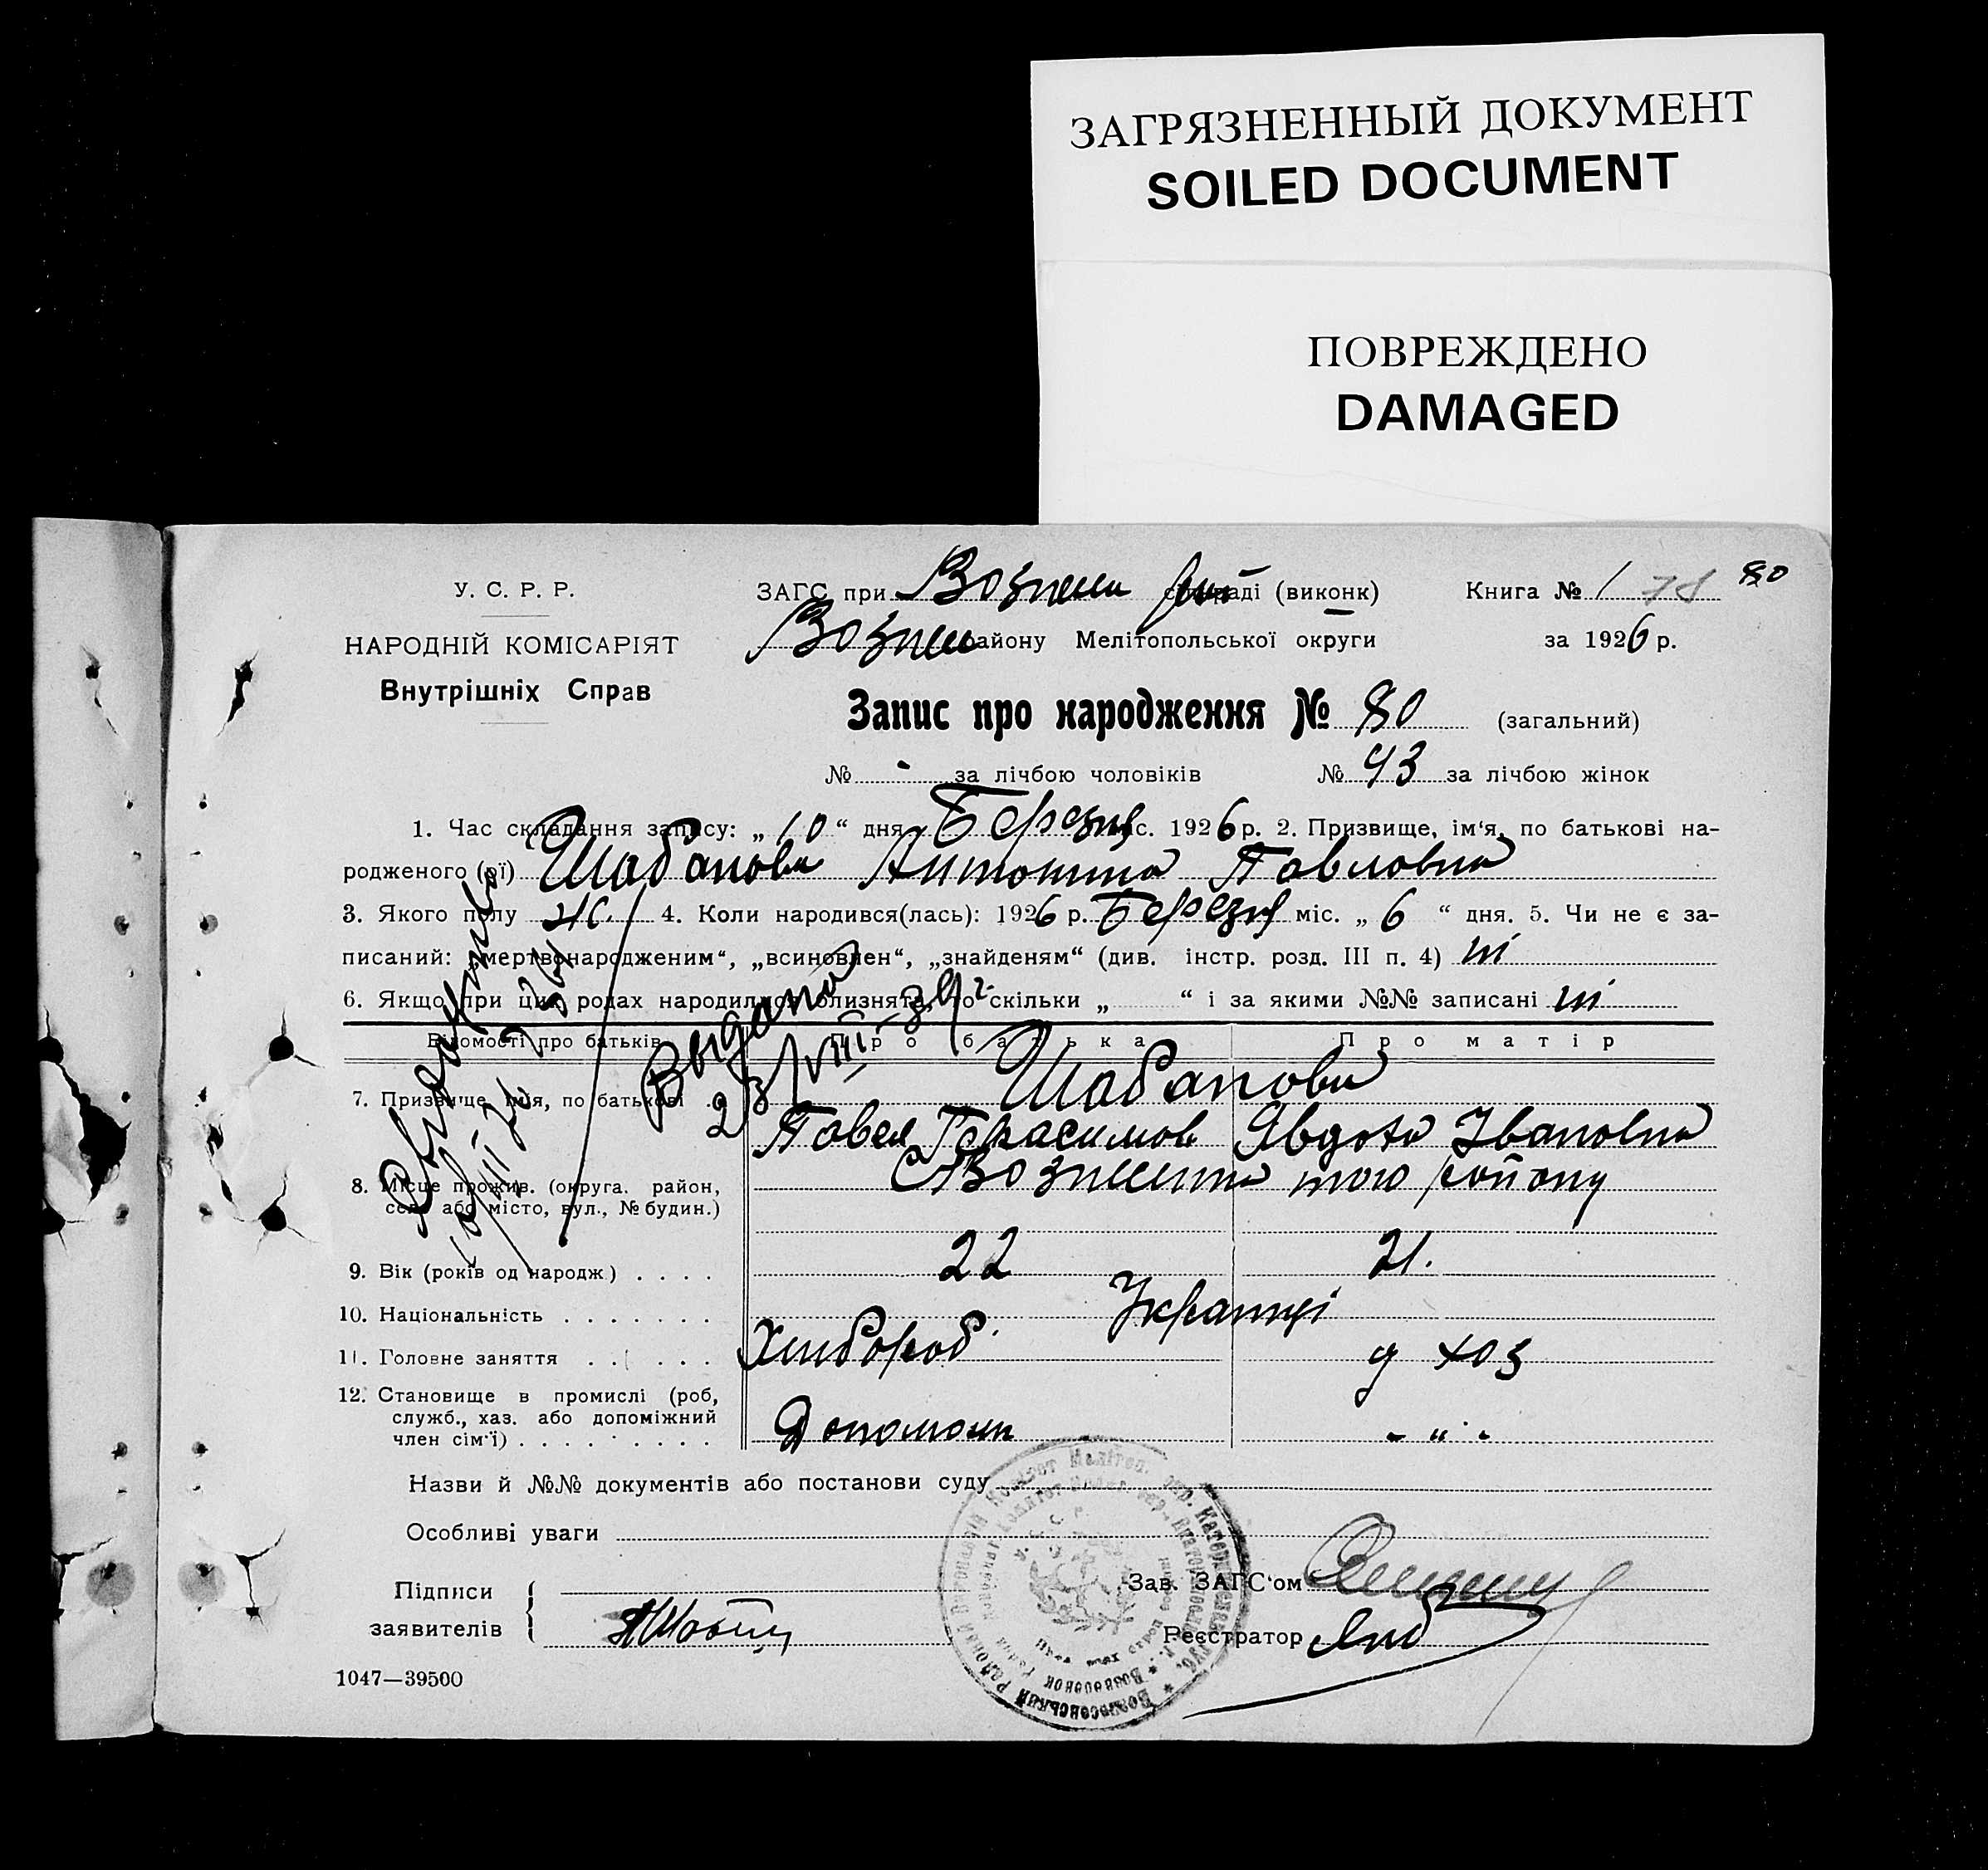 ЗАГРЯЗНЕННЫЙ ДОКУМЕНТ
SOILED DOCUMENT
ПОВРЕЖДЕНО
DAMAGED
У. С. Р. Р.
НАРОДНІЙ КОМІСАРІЯТ
Внутрішніх Справ
ЗАГС при Вознесен рай сільраді (виконк) Книга № 1 78 80
Вознес району Мелітопольської округи за 1926 р.
Запис про народження № 80 (загальний)
№ - за лічбою чоловіків № 43 за лічбою жінок
1. Час складання запису: „ 10 “ дня Березня міс. 1926 р. 2. Призвище, ім‘я, по батькові на-
родженого (ої) Шабанова Антонина Павловна
3. Якого полу ж. 4. Коли народився(лась): 1926 р. Березня міс. „ 6 “ дня. 5. Чи не є за-
писаний: „мертвонародженим“, „всиновлен“, „знайденям“ (див. інстр. розд. III п. 4) ні
6. Якщо при цих родах народилися близнята, то скільки „ “ і за якими №№ записані ні
Выдано
23/VIII-39г.
Відомості про батьків Про батька Про матір
7. Призвище, імя, по батькові Шабанови
Павел Герасимов Явдота Івановна
8. Місце прожив. (округа. район, село або місто, вул., № будин.) С Вознесенка того району
9. Вік (років од народж.) 22 21.
10. Національність Українці
11. Головне заняття Хлибороб д хоз
12. Становище в промислі (роб,
служб., хаз. або допоміжний
член сім‘ї) Допоможн - „ -
Назви й №№ документів або постанови суду
Особливі уваги
Підписи
заявителів
Зав. ЗАГС‘ом
Реєстратор
1047—39500